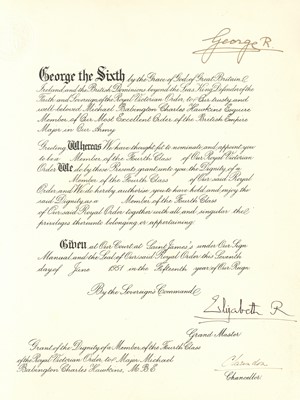 George R.
George the Sixth by the Grace of God, of Great Britain,
Ireland and the British Dominions beyond the Seas, King, Defender of the
Faith and Sovereign of the Royal Victorian Order, to Our trusty and
well-beloved Michael Babington Charles Hawkins, Esquire
Member of Our Most Excellent Order of the British Empire
Major in Our Army
Greeting Whereas We have thought fit to nominate and appoint you
to be a Member of the Fourth Class of Our Royal Victorian
Order We do by these Presents grant unto you the Dignity of a
Member of the Fourth Class of Our said Royal
Order and We do hereby authorise you to have hold and enjoy the
said Dignity as a Member of the Fourth Class
of Our said Royal Order together with all and singular the
privileges thereunto belonging or appertaining
Given at Our Court at Saint James's under Our Sign
Manual and the Seal of Our said Royal Order this Seventh
day of June 1951 in the Fifteenth year of Our Reign.
By the Sovereign's Command
Elizabeth R
Grand Master
Grant of the Dignity of a Member of the Fourth Class
of the Royal Victorian Order, to Major Michael
Babington Charles Hawkins, M.B.E.
Chancellor